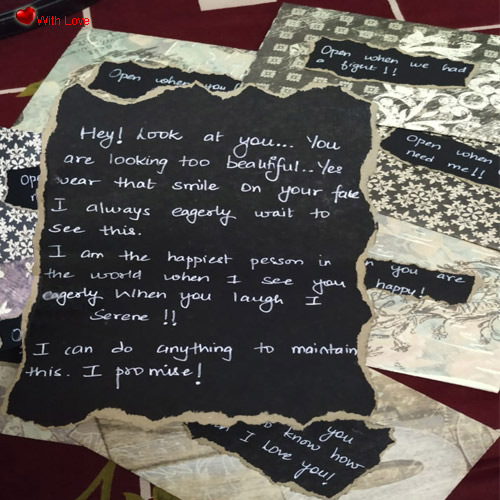 With Love
Open when you
Open when we had
a fight!!
Open when
need me!!
Hey! Look at you... You
are looking too beautiful.. Yes
wear that smile on your face
I always eagerly wait to
see this.
I am the happiest person in
the world when I see you
eagerly When you laugh I
Serene !!
I can do anything to maintain
this. I promise!
you are
happy!
you
to know how
I love you!